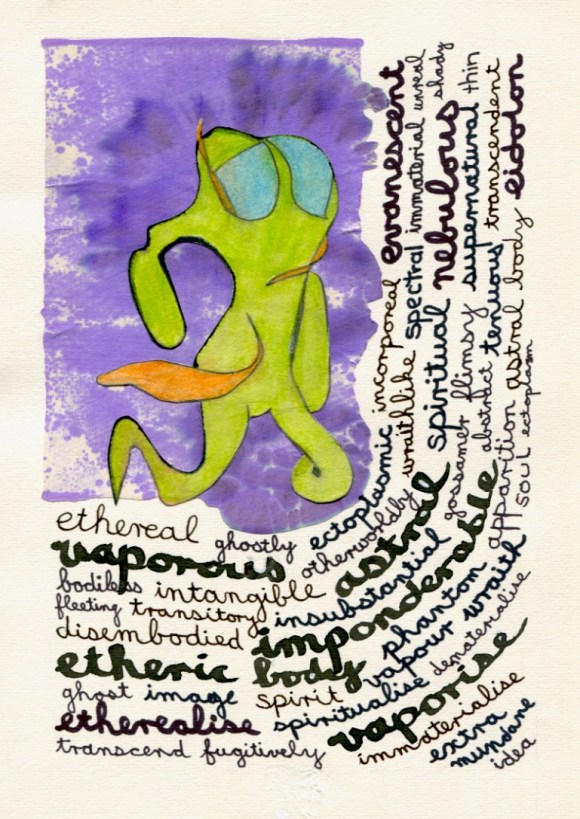 ethereal ghostly ectoplasmic incorporeal evanescent
vaporous otherworldly wraithlike spectral immaterial unreal
bodiless intangible astral spiritual nebulous shady
fleeting transitory insubstantial gossamer flimsy supernatural thin
disembodied imponderable abstract tenuous transcendent
etheric body phantom apparition astral body eidolon
ghost image spirit vapour wraith soul ectoplasm
etherealise spiritualise dematerialise
transcend fugitively vaporise
immaterialise
extra
mundane
idea